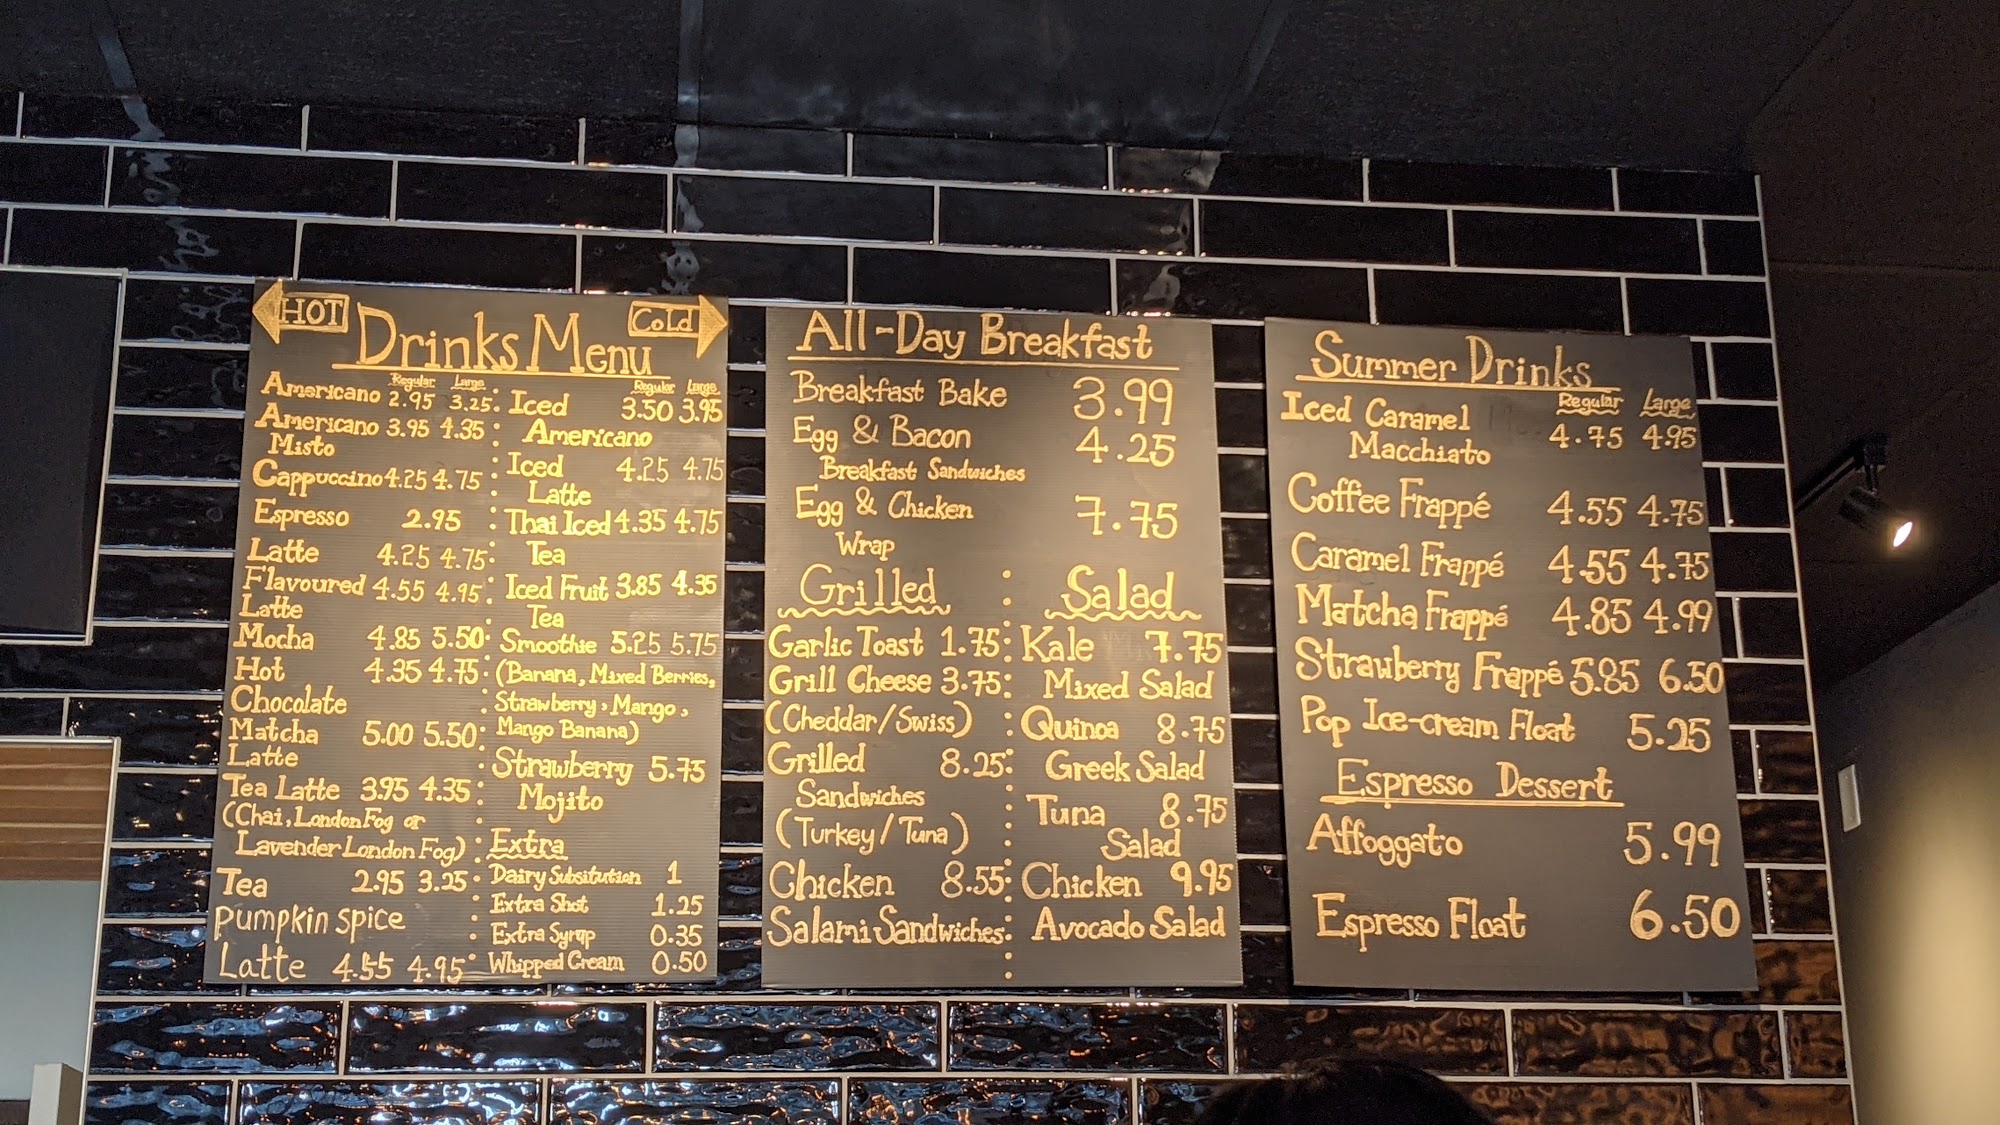 HOT
Cold
Drinks Menu
Regular Large
Americano 2.95 3.25
Americano 3.95 4.35
Misto
Cappuccino 4.25 4.75
Espresso 2.95
Latte 4.25 4.75
Flavoured 4.55 4.95
Latte
Mocha 4.85 5.50
Hot 4.35 4.75
Chocolate
Matcha 5.00 5.50
Latte
Tea Latte 3.95 4.35
(Chai, London Fog or
Lavender London Fog)
Tea 2.95 3.25
Pumpkin spice
Latte 4.55 4.95
Regular Large
Iced 3.50 3.95
Americano
Iced 4.25 4.75
Latte
Thai Iced 4.35 4.75
Tea
Iced Fruit 3.85 4.35
Tea
Smoothie 5.25 5.75
(Banana, Mixed Berries,
Strawberry, Mango,
Mango Banana)
Strawberry 5.75
Mojito
Extra
Dairy Subsitution 1
Extra Shot 1.25
Extra Syrup 0.35
Whipped Cream 0.50
All-Day Breakfast
Breakfast Bake 3.99
Egg & Bacon 4.25
Breakfast Sandwiches
Egg & Chicken 7.75
Wrap
Grilled
Garlic Toast 1.75
Grill Cheese 3.75
(Cheddar/Swiss)
Grilled 8.25
Sandwiches
(Turkey/Tuna)
Chicken 8.55
Salami Sandwiches
Salad
Kale 7.75
Mixed Salad
Quinoa 8.75
Greek Salad
Tuna 8.75
Salad
Chicken 9.95
Avocado Salad
Summer Drinks
Regular Large
Iced Caramel 4.75 4.95
Macchiato
Coffee Frappé 4.55 4.75
Caramel Frappé 4.55 4.75
Matcha Frappé 4.85 4.99
Strawberry Frappé 5.85 6.50
Pop Ice-cream Float 5.25
Espresso Dessert
Affoggato 5.99
Espresso Float 6.50